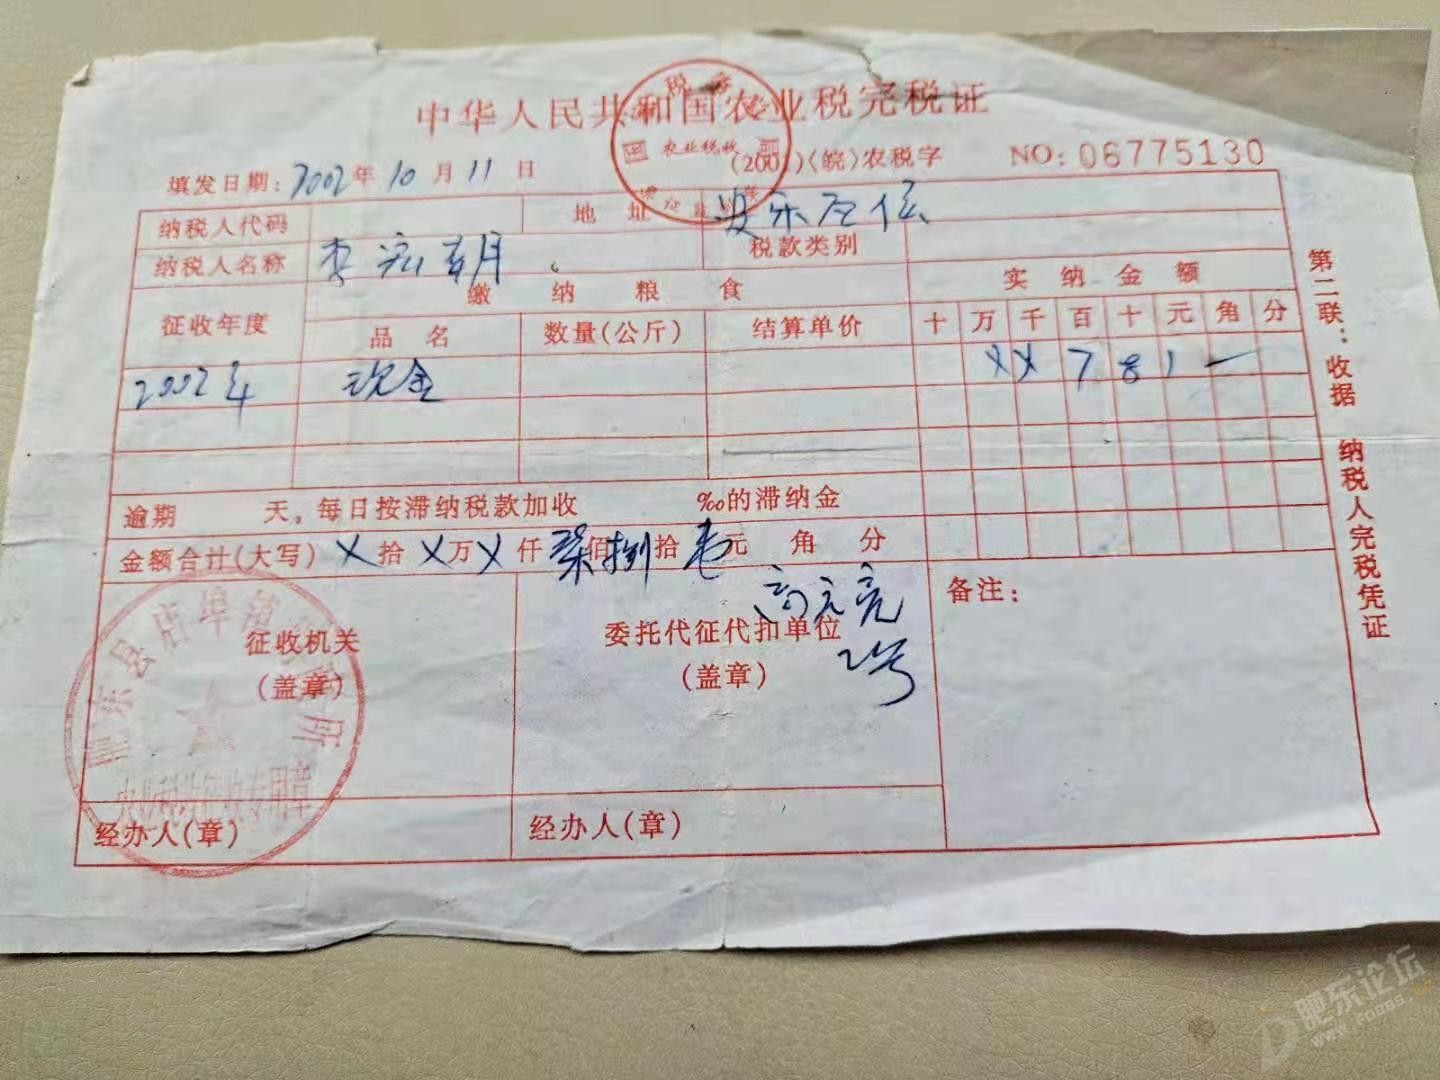 中华人民共和国农业税完税证
税务
农业税收
填发日期:2002年10月11日
(2001)(皖)农税字 NO:06775130
纳税人代码 地址
纳税人名称 李 税款类别
征收年度 缴纳粮食 实纳金额
品名 数量(公斤) 结算单价 十万千百十元角分
2002年 现金 ㄨㄨ781一
逾期 天,每日按滞纳税款加收 ‰的滞纳金
金额合计(大写) ㄨ拾ㄨ万ㄨ仟柒佰捌拾 元 角 分
征收机关
(盖章)
委托代征代扣单位
(盖章)
2号
备注:
肥东县店埠 所
农业税收征收专用章
经办人(章) 经办人(章)
第二联:收据 纳税人完税凭证
肥东论坛